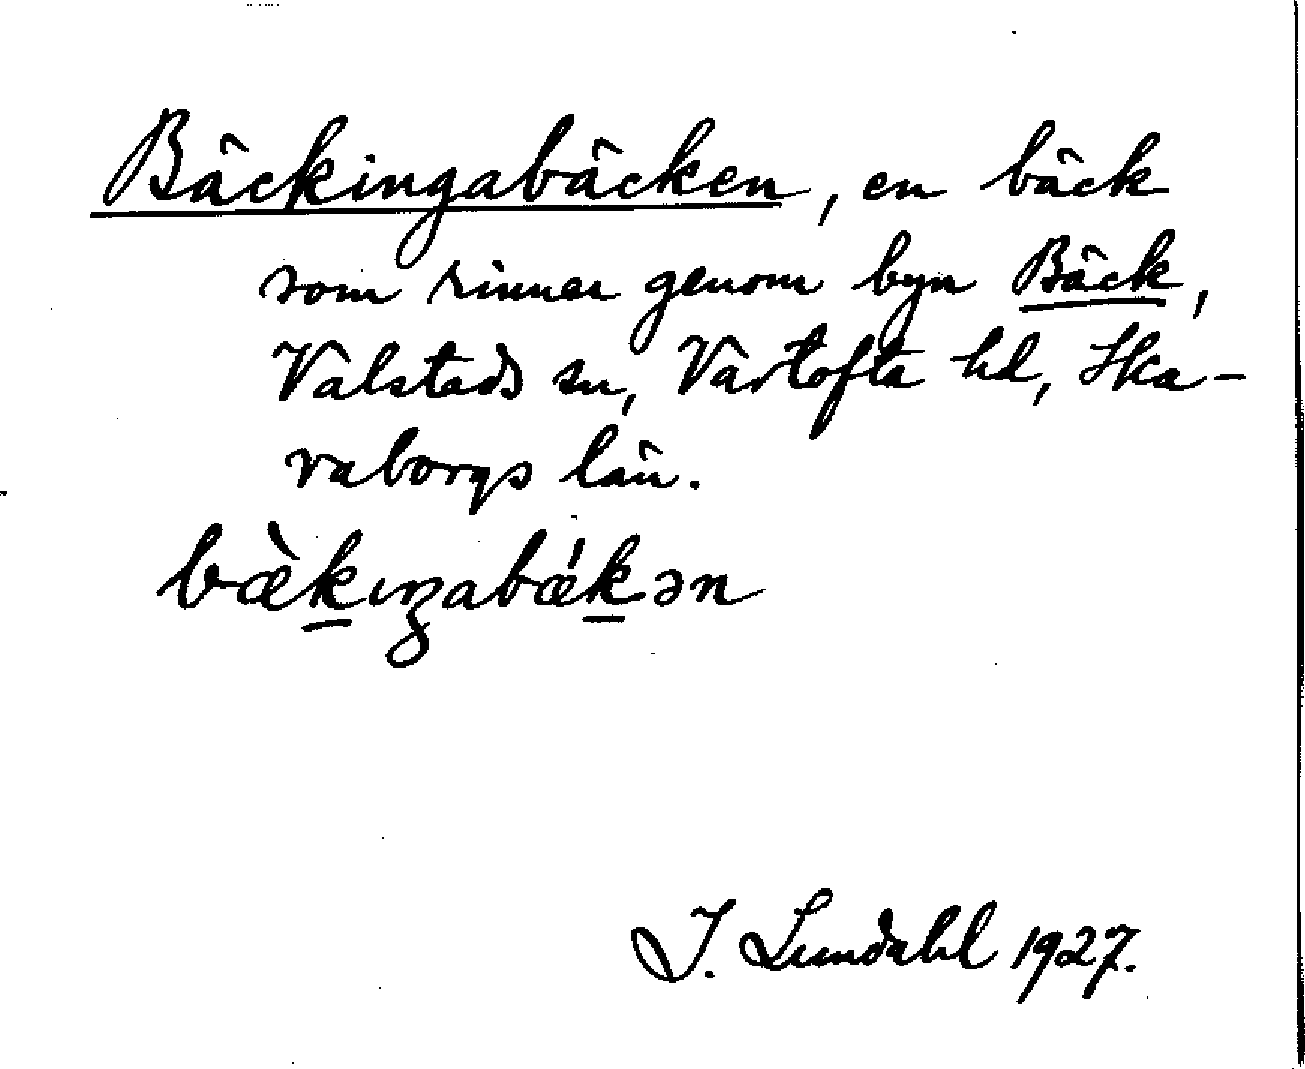 Bäckingabäcken, en bäck
som rinner genom byn Bäck,
Valstads sn, Vartofta hd, Ska-
raborgs län.
bæ̀kıŋabǽkən
I. Lundahl 1927.